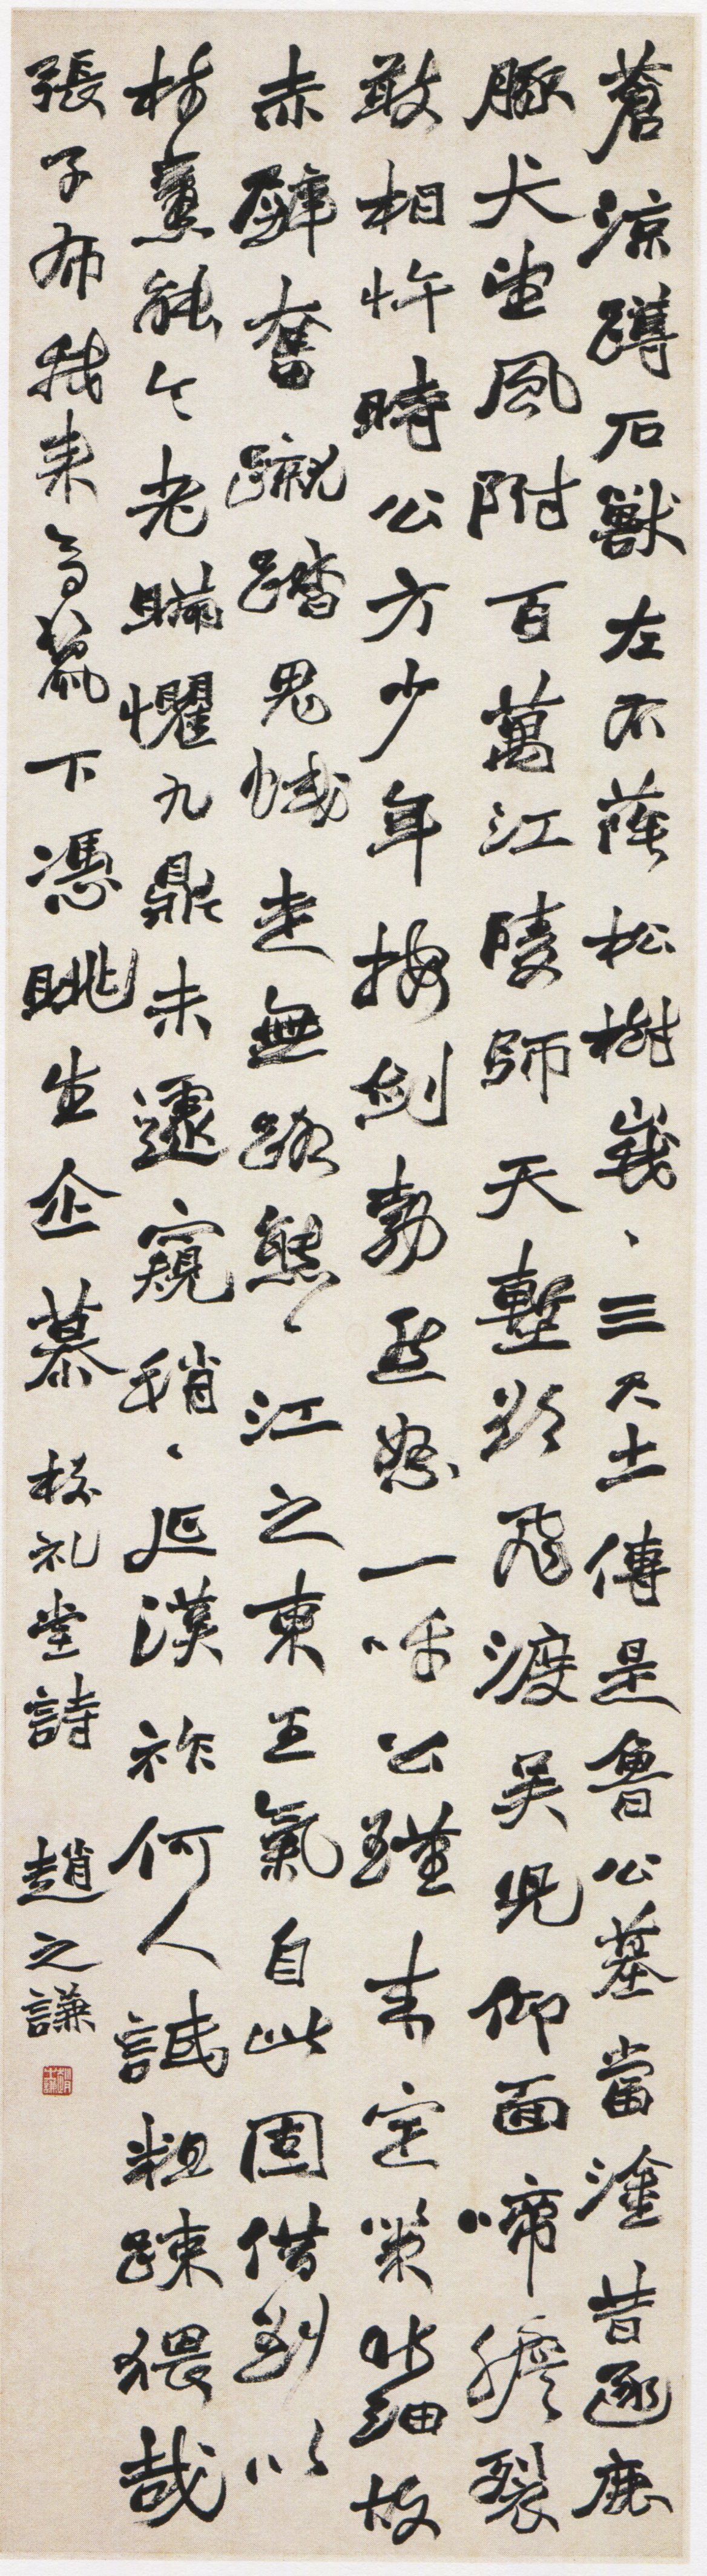 蒼涼蹲石獸左右蔭松樹峩、三尺土傳是魯公墓當塗昔逐鹿
豚犬望風附百萬江陵師天塹欲飛渡吳兒仰面啼膽裂
敢相忤時公方少年按劍勃然怒一呼公瑾來定策非細故
赤壁奮蹴踏鬼蜮走無路熊、江之東王氣自此固借荊以
樹黨能令老瞞懼九鼎未遽窺稍、延漢祚何人譏粗疎猥哉
張子布我來高冢下憑眺生企慕 校礼堂詩 趙之謙